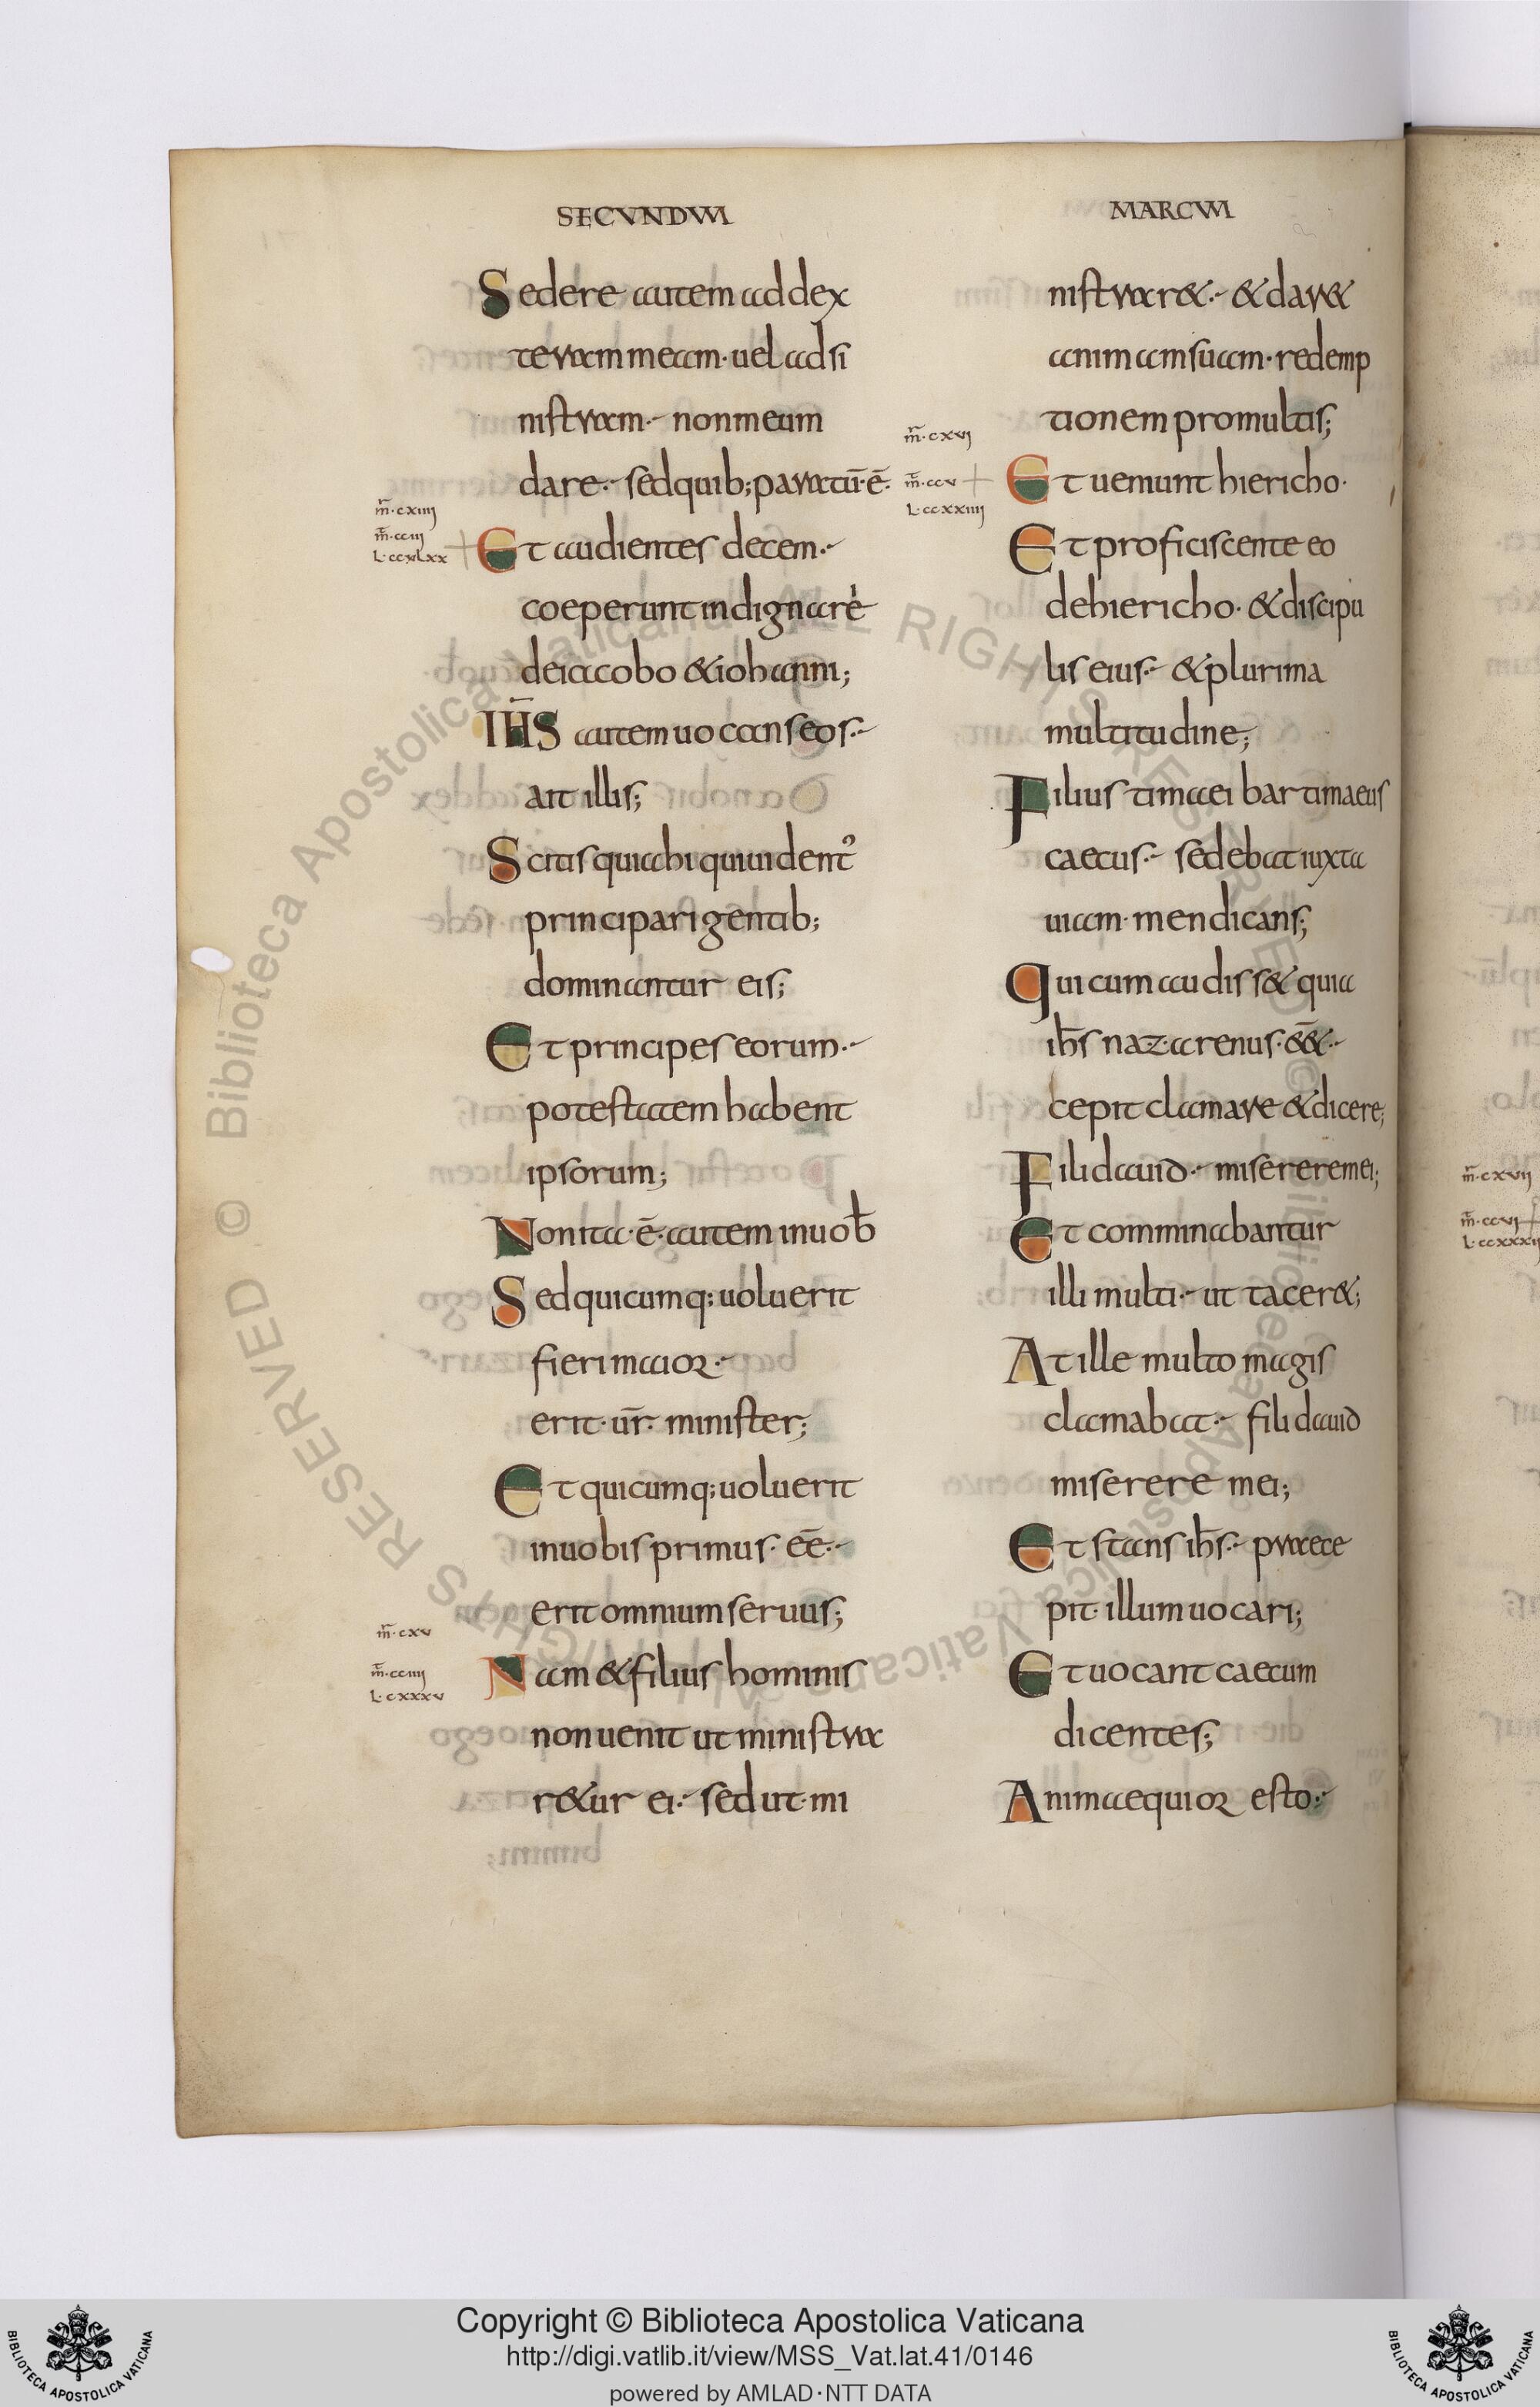 SECVNDVM
MARCVM
Sedere autem ad dex
teram meam· uel ad si
nistram·- non meum
dare·- sed quib; paratū· ē·
m̄·cxiiii
m̄·cciii
Et audientes decem·-
coeperunt indignare
de iacobo & iohanni;
IHS̄ autem uocans eos·-
ait illis;
Scitis quia hi qui uident᾽
principari gentib;
dominantur eis;
Et principes eorum·-
potestatem habent
ipsorum;
Non ita· ē· autem in uob̄
Sed quicumq; uoluerit
fieri maior·-
erit· ūr· minister;
Et quicumq; uoluerit
in uobis primus· eē·-
erit omnium seruus;
m̄·cxv
m̄·cciiii
L·cxxxv
Nam & filius hominis
non uenit ut ministra
r&ur ei·- sed ut· mi
nistrar&·- & dar&
animam suam· redemp
tionem pro multis;
m̄·cxvi
m̄·ccv
L·ccxxiiii
Et ueniunt hiericho·
Et proficiscente eo
de hiericho· & discipu
lis eius·- & plurima
multitudine;
Filius timaei bartimaeus
caecus·- sedebat iuxta
uiam· mendicans;
Qui cum audiss& quia
ih̄s nazarenus· ē&·-
cepit clamare & dicere;
Fili dauid·- miserere mei;
Et comminabantur
illi multi·- ut tacer&;
At ille multo magis
clamabat·- fili dauid
miserere mei;
Et stans ih̄s·- praece
pit· illum uocari;
Et uocant caecum
dicentes;
Animaequior esto·-
m̄·cxvii
m̄·ccvi
Copyright © Biblioteca Apostolica Vaticana
http://digi.vatlib.it/view/MSS_Vat.lat.41/0146
powered by AMLAD·NTT DATA
BIBLIOTECA APOSTOLICA VATICANA
BIBLIOTECA APOSTOLICA VATICANA
© Biblioteca Apostolica Vaticana ALL RIGHTS RESERVED © Biblioteca Apostolica Vaticana ALL RIGHTS RESERVED